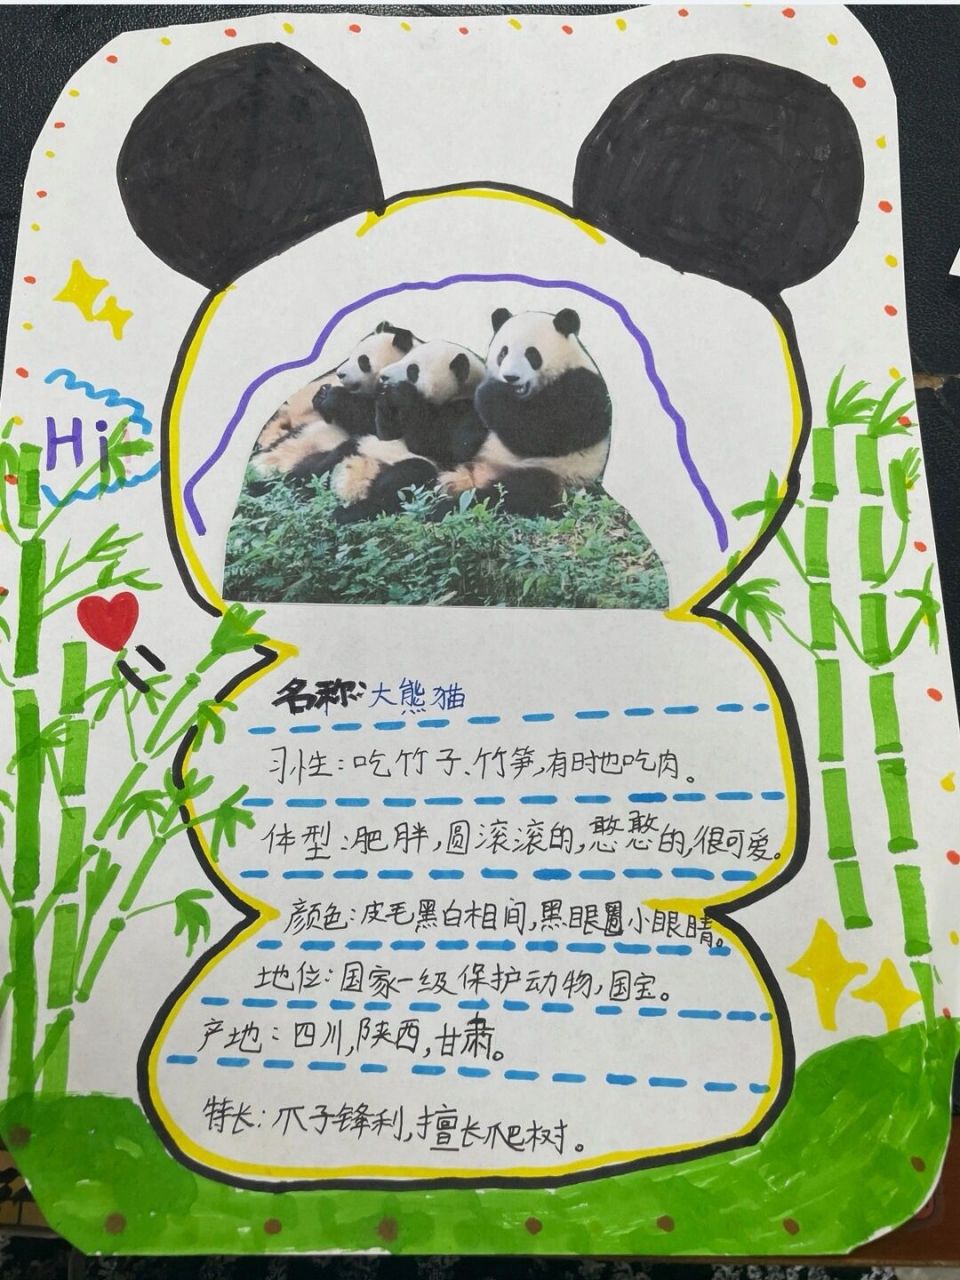 Hi
名称:大熊猫
习性:吃竹子、竹笋,有时也吃肉。
体型:肥胖,圆滚滚的,憨憨的,很可爱。
颜色:皮毛黑白相间,黑眼圈小眼睛。
地位:国家一级保护动物,国宝。
产地:四川,陕西,甘肃。
特长:爪子锋利,擅长爬树。